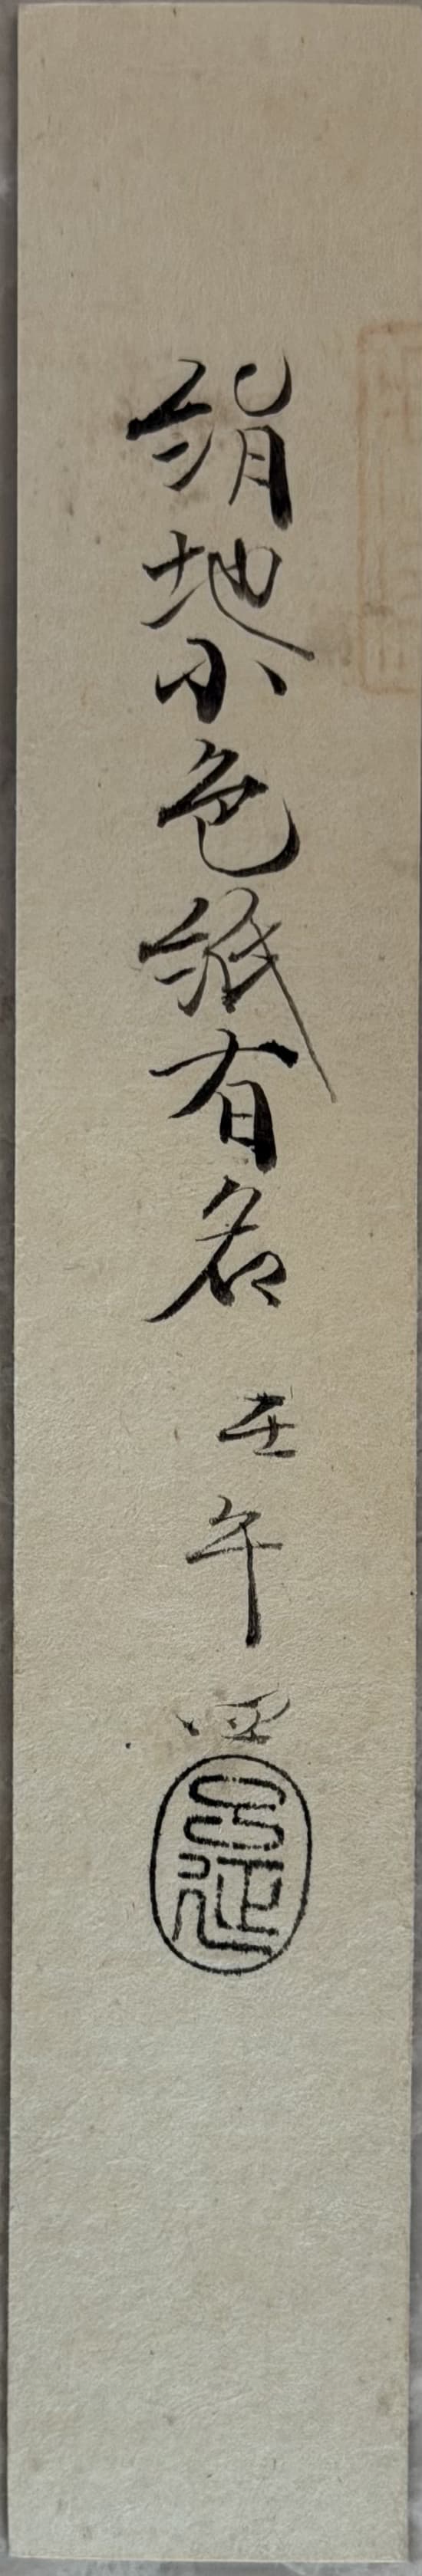 絹地小色紙有名 壬午 四